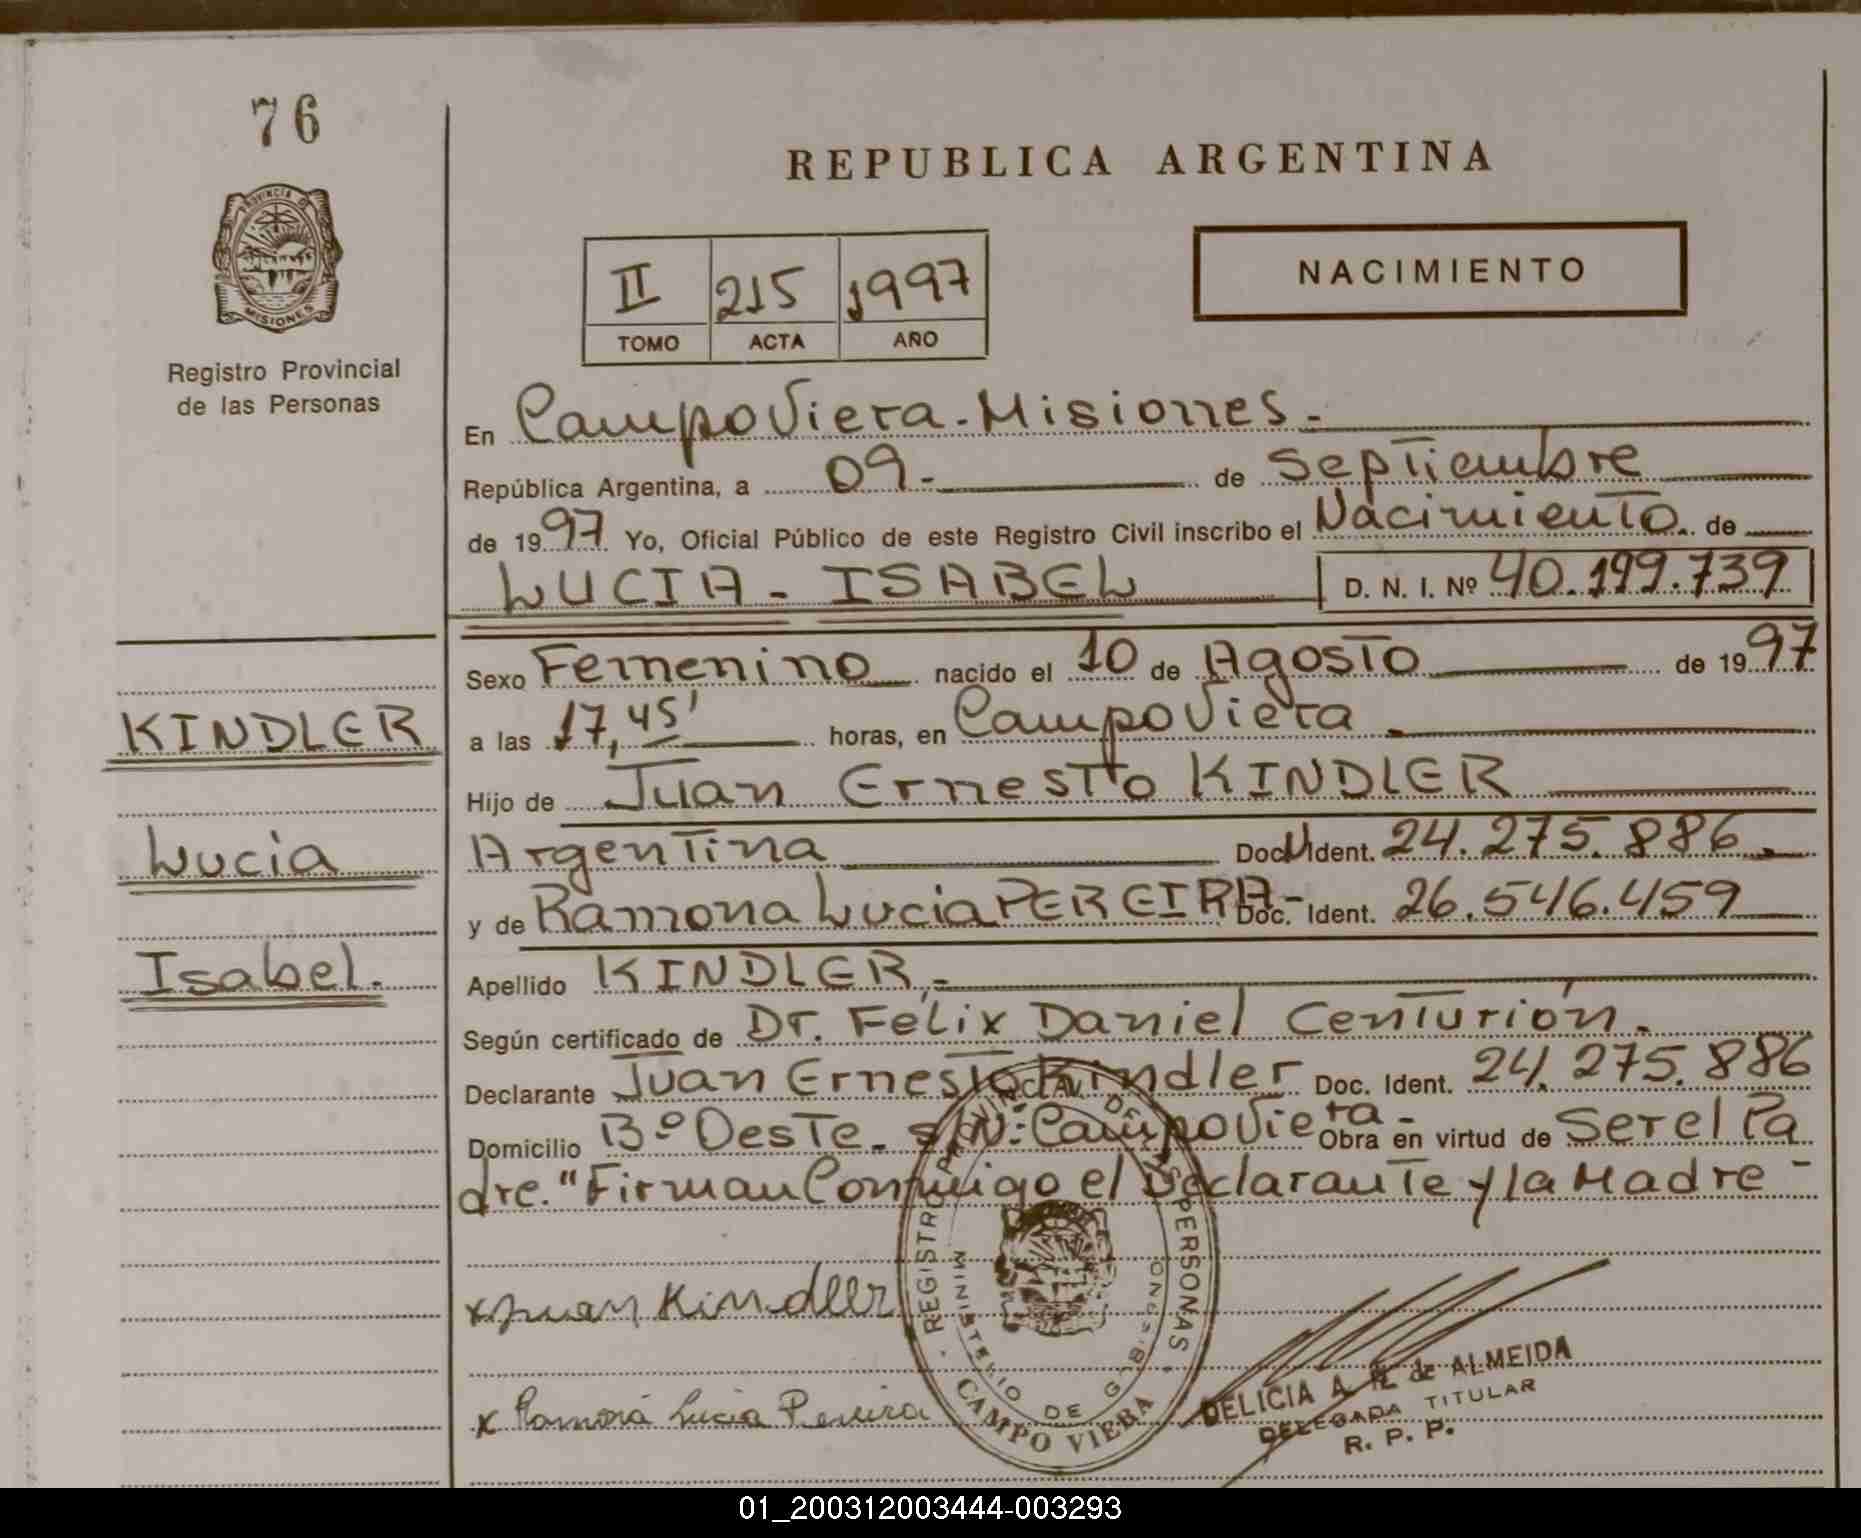 76
PROVINCIA DE
MISIONES
Registro Provincial
de las Personas
KINDLER
Lucia
Isabel.
REPUBLICA ARGENTINA
II 215 1997
TOMO ACTA AÑO
NACIMIENTO
En Campo Viera - Misiones -
República Argentina, a 09 - de Septiembre
de 1997 Yo, Oficial Público de este Registro Civil inscribo el Nacimiento de
LUCIA - ISABEL D. N. I. Nº 40.199.739
Sexo Femenino nacido el 10 de Agosto de 1997
a las 17,45' horas, en Campo Viera
Hijo de Juan Ernesto KINDLER
Argentina Doc. Ident. 24.275.886
y de Ramona Lucia PEREIRA - Doc. Ident. 26.546.459
Apellido KINDLER -
Según certificado de Dr. Félix Daniel Centurión.
Declarante Juan Ernesto Kindler Doc. Ident. 24.275.886
Domicilio Bº Oeste - s/Nº: Campo Viera - Obra en virtud de Ser el Pa
dre. "Firman Conmigo el Declarante y la Madre -
x Juan Kindler
x Ramona Lucia Pereira
REGISTRO PROVINCIAL DE LAS PERSONAS
MINISTERIO DE GOBIERNO
CAMPO VIERA
DELICIA A. de ALMEIDA
DELEGADA TITULAR
R. P. P.
01_200312003444-003293